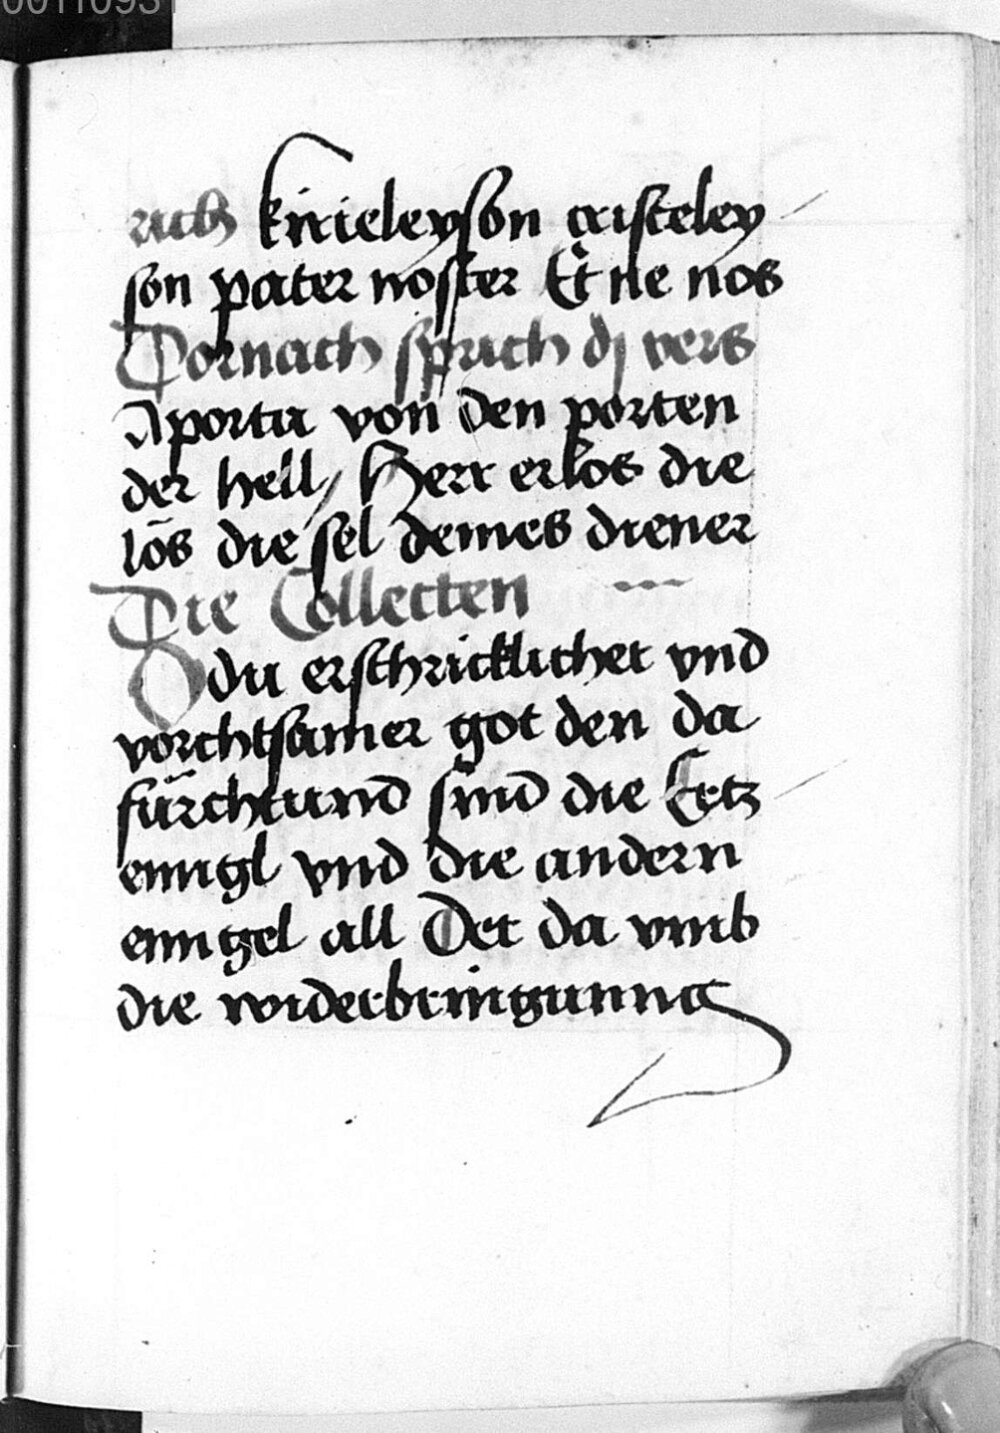 kirieleyson cristeley
son pater noster Et ne nos
Dornach sprich dj vers
A porta von den porten
der hell / Herr erlos die
lös die sel deines diener
Die Collecten
O du erschricklicher vnd
vorchtsamer got den da
fürchtund sind die Ertz
enngl vnd die andern
enngel all Der da vmb
die widerbringunng